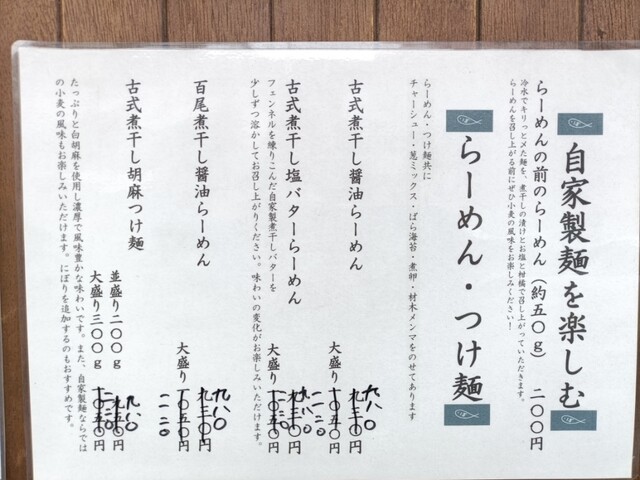 自家製麺を楽しむ
らーめんの前のらーめん(約五〇g) 二〇〇円
冷水でキリっと〆た麺を、煮干しの漬けとお塩と柑橘で召し上がっていただきます。
らーめんを召し上がる前にぜひ小麦の風味をお楽しみください!
らーめん・つけ麺
らーめん・つけ麺共に
チャーシュー・葱ミックス・ばら海苔・煮卵・材木メンマをのせてあります
古式煮干し醤油らーめん 九八〇円
大盛り 一〇五〇円 一一二〇
古式煮干し塩バターらーめん
フェンネルを練りこんだ自家製煮干しバターを
少しずつ溶かしてお召し上がりください。味わいの変化がお楽しみいただけます。
大盛り 円
百尾煮干し醤油らーめん 九三〇円 九八〇
大盛り 一〇五〇円 一一二〇
古式煮干し胡麻つけ麺
並盛り二〇〇g 円 九八〇
大盛り三〇〇g 一〇五〇円
たっぷりと白胡麻を使用し濃厚で風味豊かな味わいです。また、自家製麺ならでは
の小麦の風味もお楽しみいただけます。にぼりを追加するのもおすすめです。